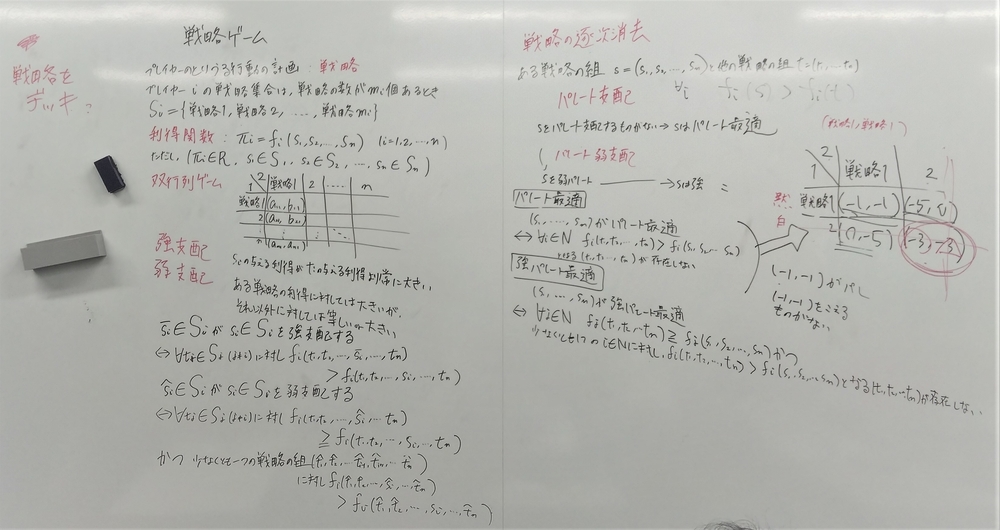 戦略を
デッキ?
戦略ゲーム
プレイヤーのとりうる行動の計画:戦略
プレイヤー i の戦略集合は、戦略の数が mi 個あるとき
Si = {戦略1, 戦略2, ...., 戦略mi}
利得関数: πi = fi (S1, S2, ..., Sn) (i=1,2,...,n)
ただし、(πi∈R, S1∈S1, S2∈S2, ... Sn∈Sn)
双行列ゲーム
1 2 戦略1 2 ..... n
戦略1 (a11, b11)
2 (a21, b21)
強支配
弱支配
Siの与える利得がtiの与える利得より常に大きい
ある戦略の利得に対しては大きいが、
それ以外に対しては等しいか大きい
s̄i∈Si が si∈Si を強支配する
⇔ ∀tj∈Sj (j≠i) に対し fi(t1, t2, ..., s̄i, ..., tn)
> fi(t1, t2, ..., si, ..., tn)
ŝi∈Si が si∈Si を弱支配する
⇔ ∀tj∈Sj (j≠i) に対し fi(t1, t2, ..., ŝi, ... tn)
≧ fi(t1, t2, ..., si, ..., tn)
かつ 少なくとも一つの戦略の組
に対し fi(t̂1, t̂2, ... ŝi, ... t̂n)
> fi(t̂1, t̂2, ..., si, ..., t̂n)
戦略の逐次消去
ある戦略の組 s = (s1, s2, ..., sn) と他の戦略の組 t = (t1, ... tn)
パレート支配 ∀i fi(s) > fi(t)
sをパレート支配するものがない → sはパレート最適
パレート弱支配
sを弱パレート → sは強
パレート最適
(s1, ..., sn) がパレート最適
⇔ ∀i∈N fi(t1, t2, ..., tn) > fi(s1, s2, ... sn)
となる (t1, t2, ..., tn) が存在しない
強パレート最適
(s1, ..., sn) が強パレート最適
⇔ ∀i∈N fi(t1, t2, ... tn) ≧ fi(s1, s2, ..., sn) かつ
少なくとも1つの i∈N に対し、fi(t1, t2, ..., tn) > fi(s1, s2, ..., sn) となる (t1, t2, ... tn) が存在しない
(戦略1, 戦略1)
1 2 戦略1 2
黙 戦略1 (-1, -1) (-5, 0)
自 2 (0, -5) (-3, -3)
(-1, -1) がパレ
(-1, -1) をこえる
ものがない